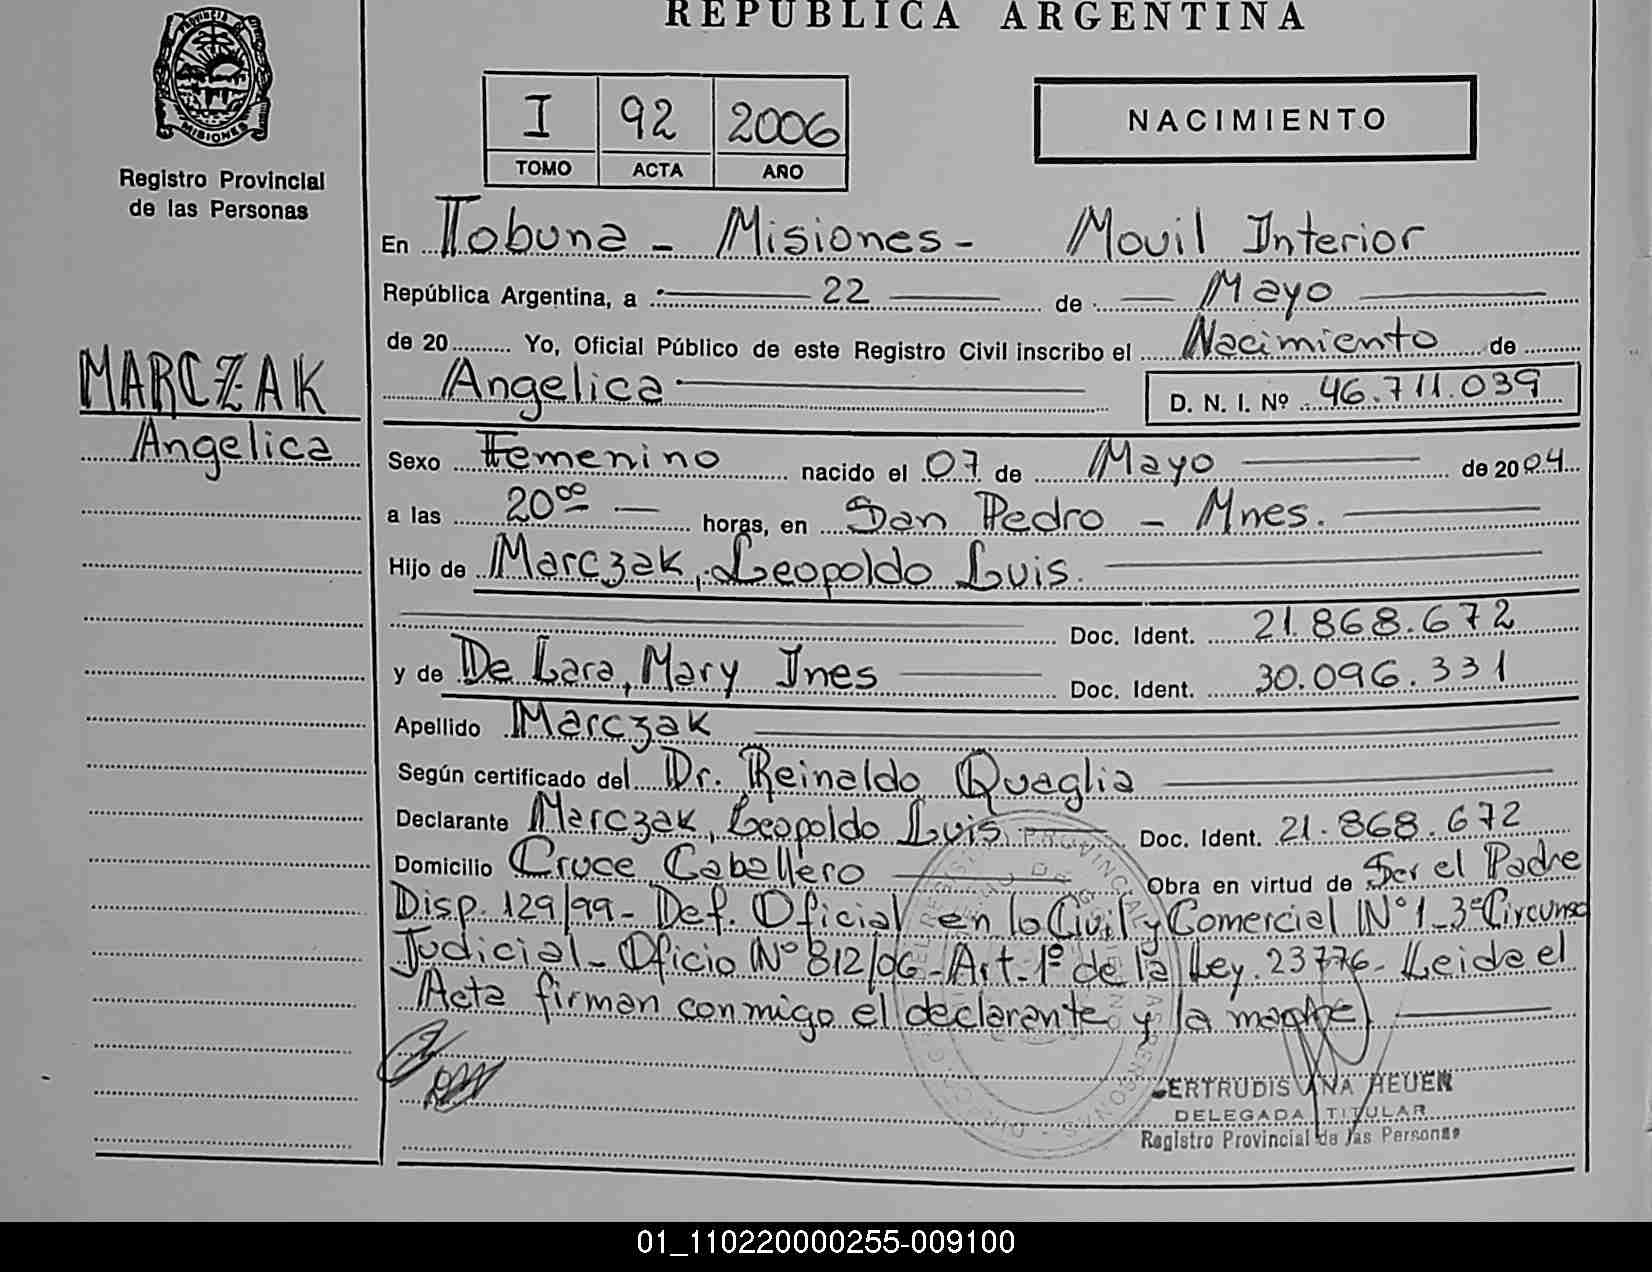 REPUBLICA ARGENTINA
PROVINCIA DE
MISIONES
Registro Provincial
de las Personas
I 92 2006
TOMO ACTA AÑO
NACIMIENTO
En Tobuna - Misiones - Movil Interior
República Argentina, a 22 de Mayo
de 20 Yo, Oficial Público de este Registro Civil inscribo el Nacimiento de
Angelica D. N. I. Nº 46.711.039
MARCZAK
Angelica
Sexo Femenino nacido el 07 de Mayo de 2004
a las 20⁰⁰ horas, en San Pedro - Mnes.
Hijo de Marczak, Leopoldo Luis.
Doc. Ident. 21.868.672
y de De Lara, Mary Ines Doc. Ident. 30.096.331
Apellido Marczak
Según certificado del Dr. Reinaldo Quaglia
Declarante Marczak, Leopoldo Luis Doc. Ident. 21.868.672
Domicilio Cruce Caballero Obra en virtud de Ser el Padre
Disp. 129/99- Def. Oficial en lo Civil y Comercial Nº 1 - 3º Circunsc
Judicial - Oficio Nº 812/06 - Art. 1º de la Ley. 23776 - Leida el
Acta firman conmigo el declarante y la madre
ERTRUDIS ANA HEUER
DELEGADA TITULAR
Registro Provincial de las Personas
01_110220000255-009100